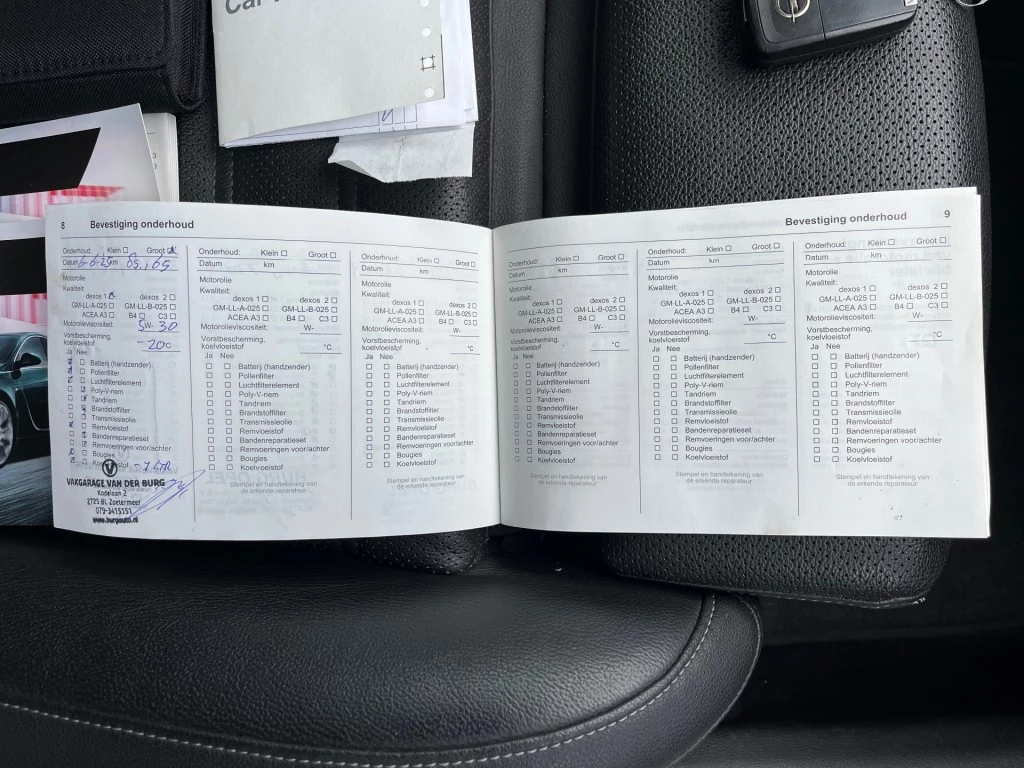 Car
8 Bevestiging onderhoud
Onderhoud: Klein Groot
Datum 6-6-25 km 85.165
Motorolie
Kwaliteit:
dexos 1 dexos 2
GM-LL-A-025 GM-LL-B-025
ACEA A3 B4 C3
Motorolieviscositeit: 5W- 30
Vorstbescherming,
koelvloeistof -20c
Ja Nee
Batterij (handzender)
Pollenfilter
Luchtfilterelement
Poly-V-riem
Tandriem
Brandstoffilter
Transmissieolie
Remvloeistof
Bandenreparatieset
Remvoeringen voor/achter
Bougies
Koelvloeistof
VAKGARAGE VAN DER BURG
Kadelaan 2
2725 BL Zoetermeer
079-3415151
www.burgautti.nl
Onderhoud: Klein Groot
Datum km
Motorolie
Kwaliteit:
dexos 1 dexos 2
GM-LL-A-025 GM-LL-B-025
ACEA A3 B4 C3
Motorolieviscositeit: W-
Vorstbescherming,
koelvloeistof °C
Ja Nee
Batterij (handzender)
Pollenfilter
Luchtfilterelement
Poly-V-riem
Tandriem
Brandstoffilter
Transmissieolie
Remvloeistof
Bandenreparatieset
Remvoeringen voor/achter
Bougies
Koelvloeistof
Stempel en handtekening van
de erkende reparateur
Onderhoud: Klein Groot
Datum km
Motorolie
Kwaliteit:
dexos 1 dexos 2
GM-LL-A-025 GM-LL-B-025
ACEA A3 B4 C3
Motorolieviscositeit: W-
Vorstbescherming,
koelvloeistof °C
Ja Nee
Batterij (handzender)
Pollenfilter
Luchtfilterelement
Poly-V-riem
Tandriem
Brandstoffilter
Transmissieolie
Remvloeistof
Bandenreparatieset
Remvoeringen voor/achter
Bougies
Koelvloeistof
Stempel en handtekening van
de erkende reparateur
Bevestiging onderhoud 9
Onderhoud: Klein Groot
Datum km
Motorolie
Kwaliteit:
dexos 1 dexos 2
GM-LL-A-025 GM-LL-B-025
ACEA A3 B4 C3
Motorolieviscositeit: W-
Vorstbescherming,
koelvloeistof °C
Ja Nee
Batterij (handzender)
Pollenfilter
Luchtfilterelement
Poly-V-riem
Tandriem
Brandstoffilter
Transmissieolie
Remvloeistof
Bandenreparatieset
Remvoeringen voor/achter
Bougies
Koelvloeistof
Stempel en handtekening van
de erkende reparateur
Onderhoud: Klein Groot
Datum km
Motorolie
Kwaliteit:
dexos 1 dexos 2
GM-LL-A-025 GM-LL-B-025
ACEA A3 B4 C3
Motorolieviscositeit: W-
Vorstbescherming,
koelvloeistof °C
Ja Nee
Batterij (handzender)
Pollenfilter
Luchtfilterelement
Poly-V-riem
Tandriem
Brandstoffilter
Transmissieolie
Remvloeistof
Bandenreparatieset
Remvoeringen voor/achter
Bougies
Koelvloeistof
Stempel en handtekening van
de erkende reparateur
Onderhoud: Klein Groot
Datum km
Motorolie
Kwaliteit:
dexos 1 dexos 2
GM-LL-A-025 GM-LL-B-025
ACEA A3 B4 C3
Motorolieviscositeit: W-
Vorstbescherming,
koelvloeistof °C
Ja Nee
Batterij (handzender)
Pollenfilter
Luchtfilterelement
Poly-V-riem
Tandriem
Brandstoffilter
Transmissieolie
Remvloeistof
Bandenreparatieset
Remvoeringen voor/achter
Bougies
Koelvloeistof
Stempel en handtekening van
de erkende reparateur